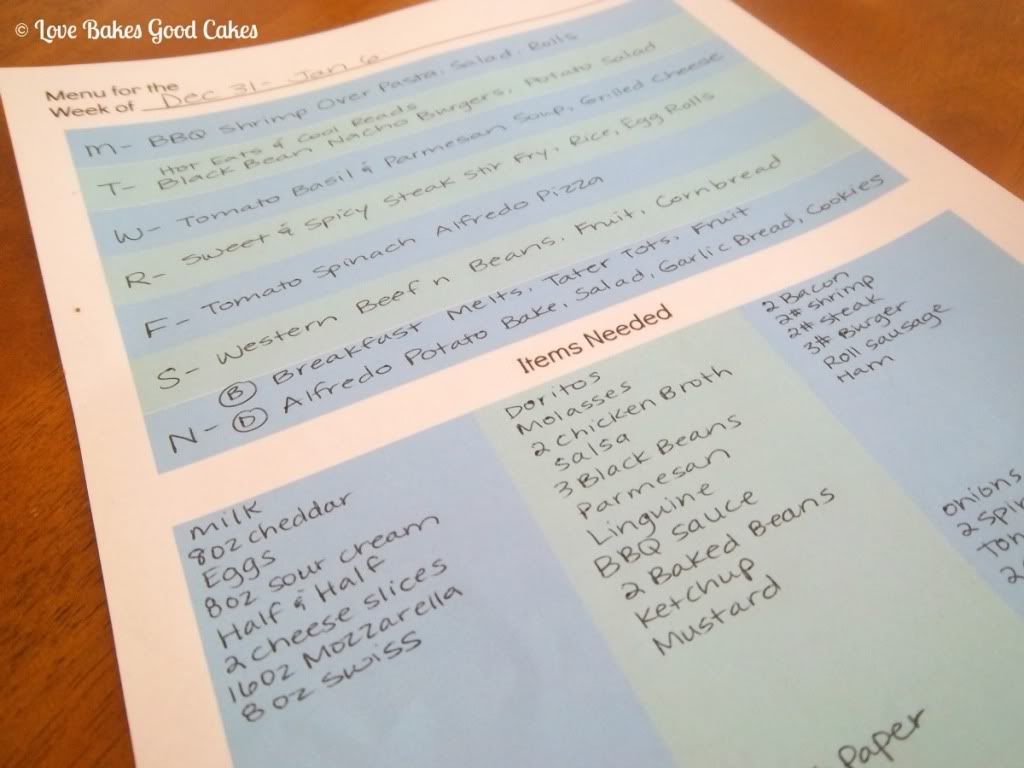 © Love Bakes Good Cakes
Menu for the
Week of Dec 31 - Jan 6
M- BBQ Shrimp Over Pasta, Salad, Rolls
Hot Eats & Cool Reads
T- Black Bean Nacho Burgers, Potato Salad
W- Tomato Basil & Parmesan Soup, Grilled Cheese
R- Sweet & Spicy Steak Stir Fry, Rice, Egg Rolls
F- Tomato Spinach Alfredo Pizza
S- Western Beef n Beans, Fruit, Cornbread
B Breakfast Melts, Tater Tots, Fruit
N- D Alfredo Potato Bake, Salad, Garlic Bread, Cookies
Items Needed
milk
8oz cheddar
Eggs
8oz sour cream
Half & Half
2 cheese slices
16oz Mozzarella
8 oz swiss
Doritos
Molasses
2 chicken Broth
salsa
3 Black Beans
Parmesan
Linguine
BBQ sauce
2 Baked Beans
Ketchup
Mustard
Paper
2 Bacon
2# shrimp
2# steak
3# Burger
Roll sausage
Ham
onions
2